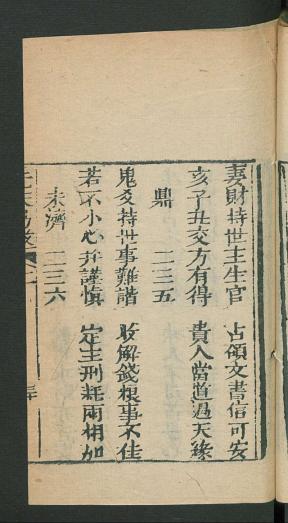 妻財持世主生官　占領文書信可安
亥子丑交方有得　貴人當道過天緣
鼎　二三五
鬼爻持世事難諧　收解錢根事不佳
若不小心并謹慎　定主刑耗兩相加
未濟　二三六